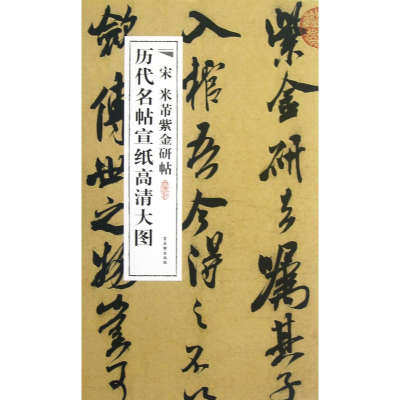 紫金研去囑其子
入棺吾今得之不以
斂傳世之物豈可
宋 米芾紫金研帖
历代名帖宣纸高清大图